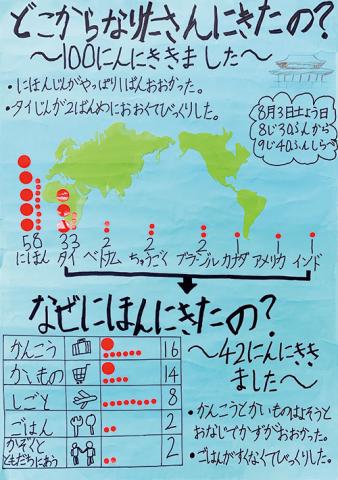 どこからなりたさんにきたの?
～100にんにききました～
・にほんじんがやっぱり1ばんおおかった。
・タイじんが2ばんめにおおくてびっくりした。
8月3日土よう日
8じ30ぷんから
9じ40ふんしらべ
58 33 2 2 2 1 1 1
にほん タイ ベトナム ちゅうごく ブラジル カナダ アメリカ インド
なぜにほんにきたの?
かんこう 16
かいもの 14
しごと 8
ごはん 2
かぞくと
ともだちにあう 2
～42にんにきき
ました～
・かんこうとかいものはよそうと
おなじでかずがおおかった。
・ごはんがすくなくてびっくりした。